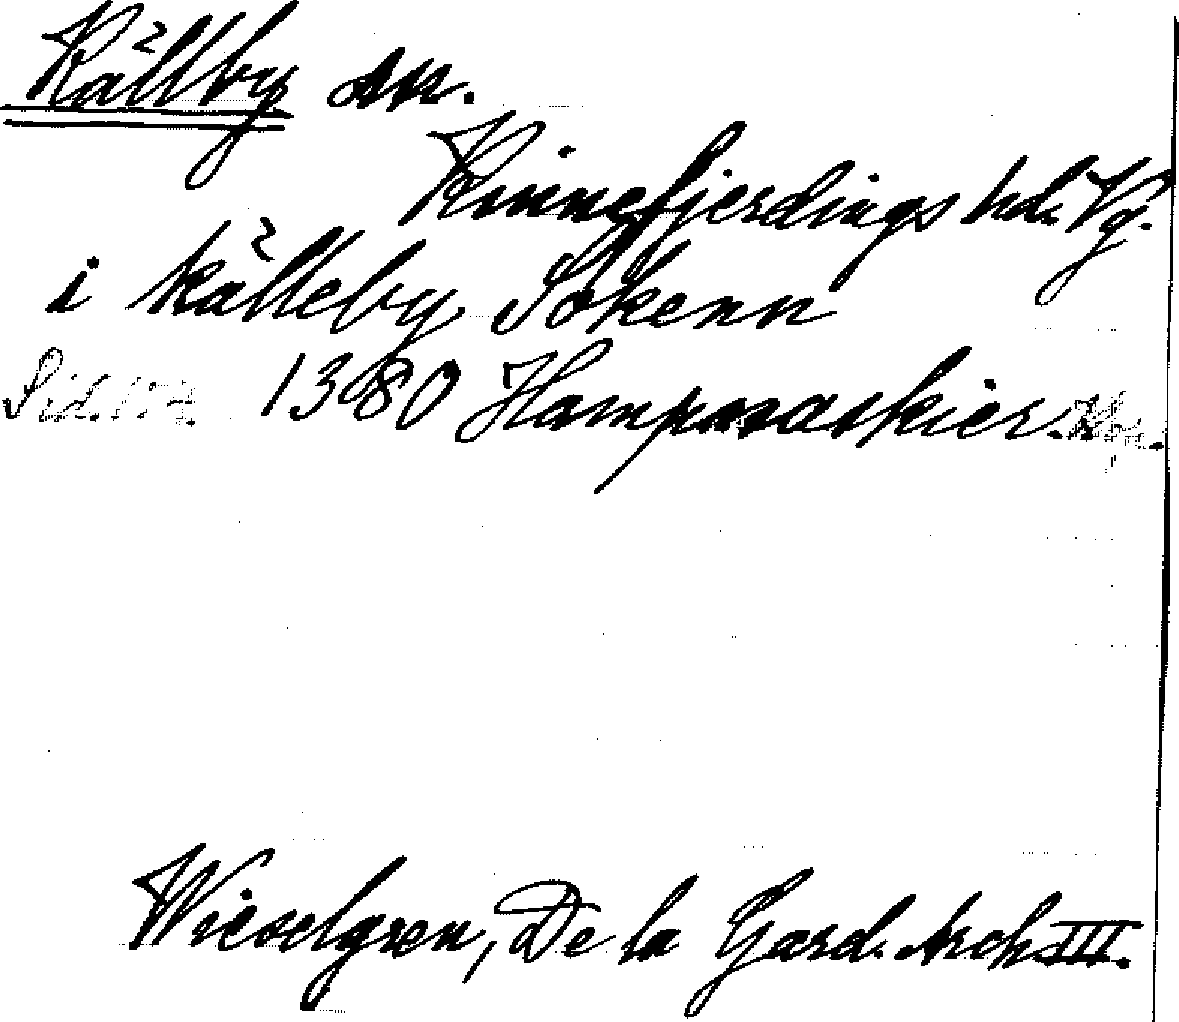 Källby sn.
Kinnefjerdings hd. Vg.
i källeby Sokenn
Sid. 1380 Hamparaskier.
Wieselgren, De la Gard. Arch III.